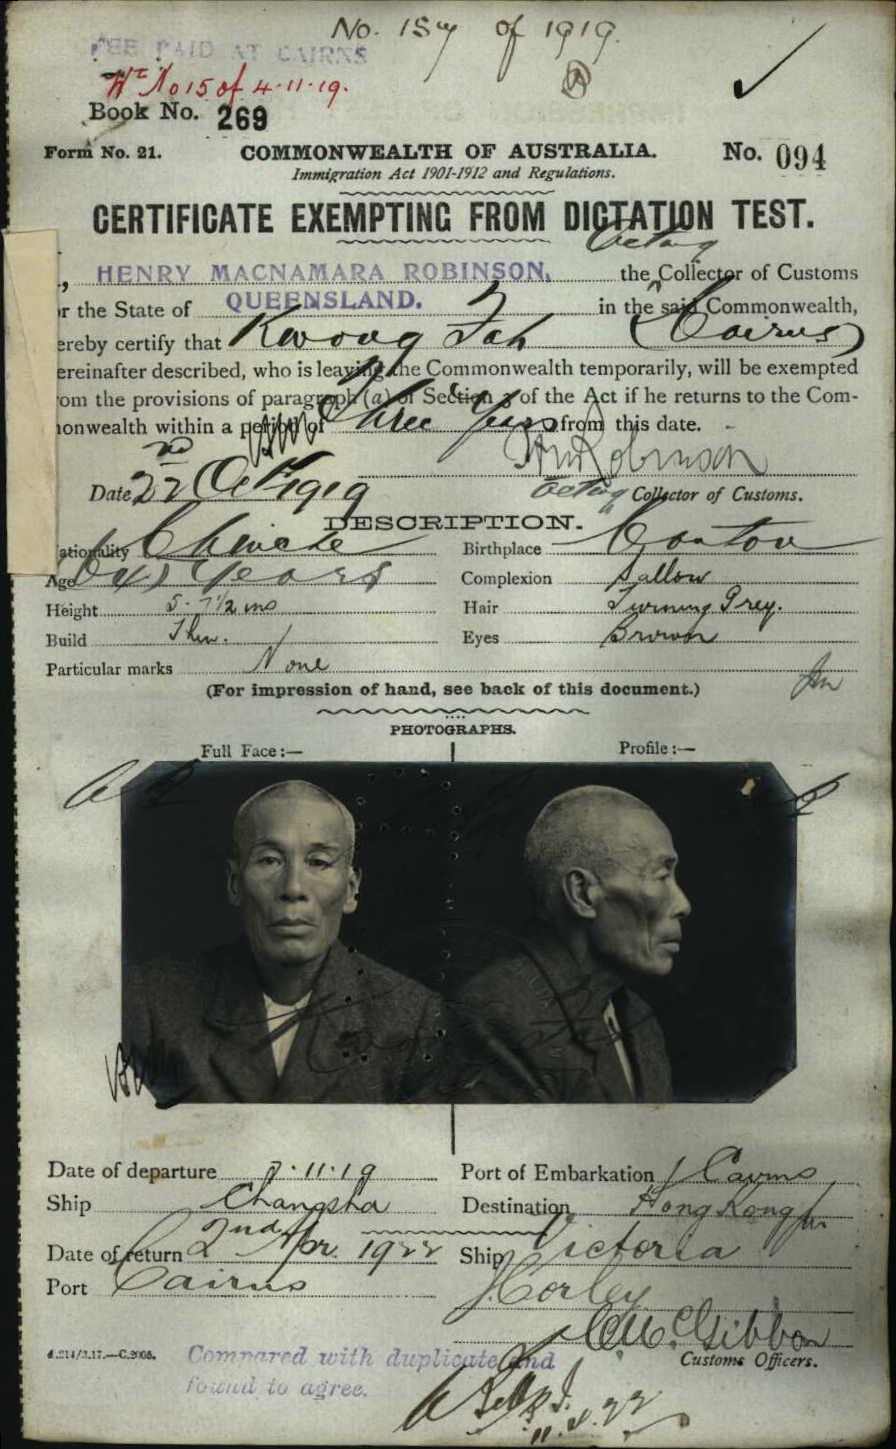 No. 157 of 1919.
FEE PAID AT CAIRNS
No 15 of 4.11.19.
Book No. 269
Form No. 21. COMMONWEALTH OF AUSTRALIA. No. 094
Immigration Act 1901-1912 and Regulations.
CERTIFICATE EXEMPTING FROM DICTATION TEST.
Acting
HENRY MACNAMARA ROBINSON, the Collector of Customs
or the State of QUEENSLAND. in the said Commonwealth,
ereby certify that Kwong Tah (Cairns)
ereinafter described, who is leaving the Commonwealth temporarily, will be exempted
rom the provisions of paragraph (a) of Section 3 of the Act if he returns to the Com-
monwealth within a period of Three Years from this date.
HM Robinson
Date 22nd Oct 1919 Acting Collector of Customs.
DESCRIPTION.
ationality Chinese Birthplace Canton
Age Years Complexion Sallow
Height 5-7½ ins Hair Turning Grey.
Build Thin. Eyes Brown
Particular marks None
(For impression of hand, see back of this document.)
PHOTOGRAPHS.
Full Face:— Profile:—
Date of departure 7.11.19 Port of Embarkation Cairns
Ship Changsha Destination Hong Kong
Date of return 2nd Apr. 1922 Ship Victoria
Port Cairns
Corley
McGibbon
4.214/3.17.—C.2005. Customs Officers.
Compared with duplicate and
found to agree.
11.4.22